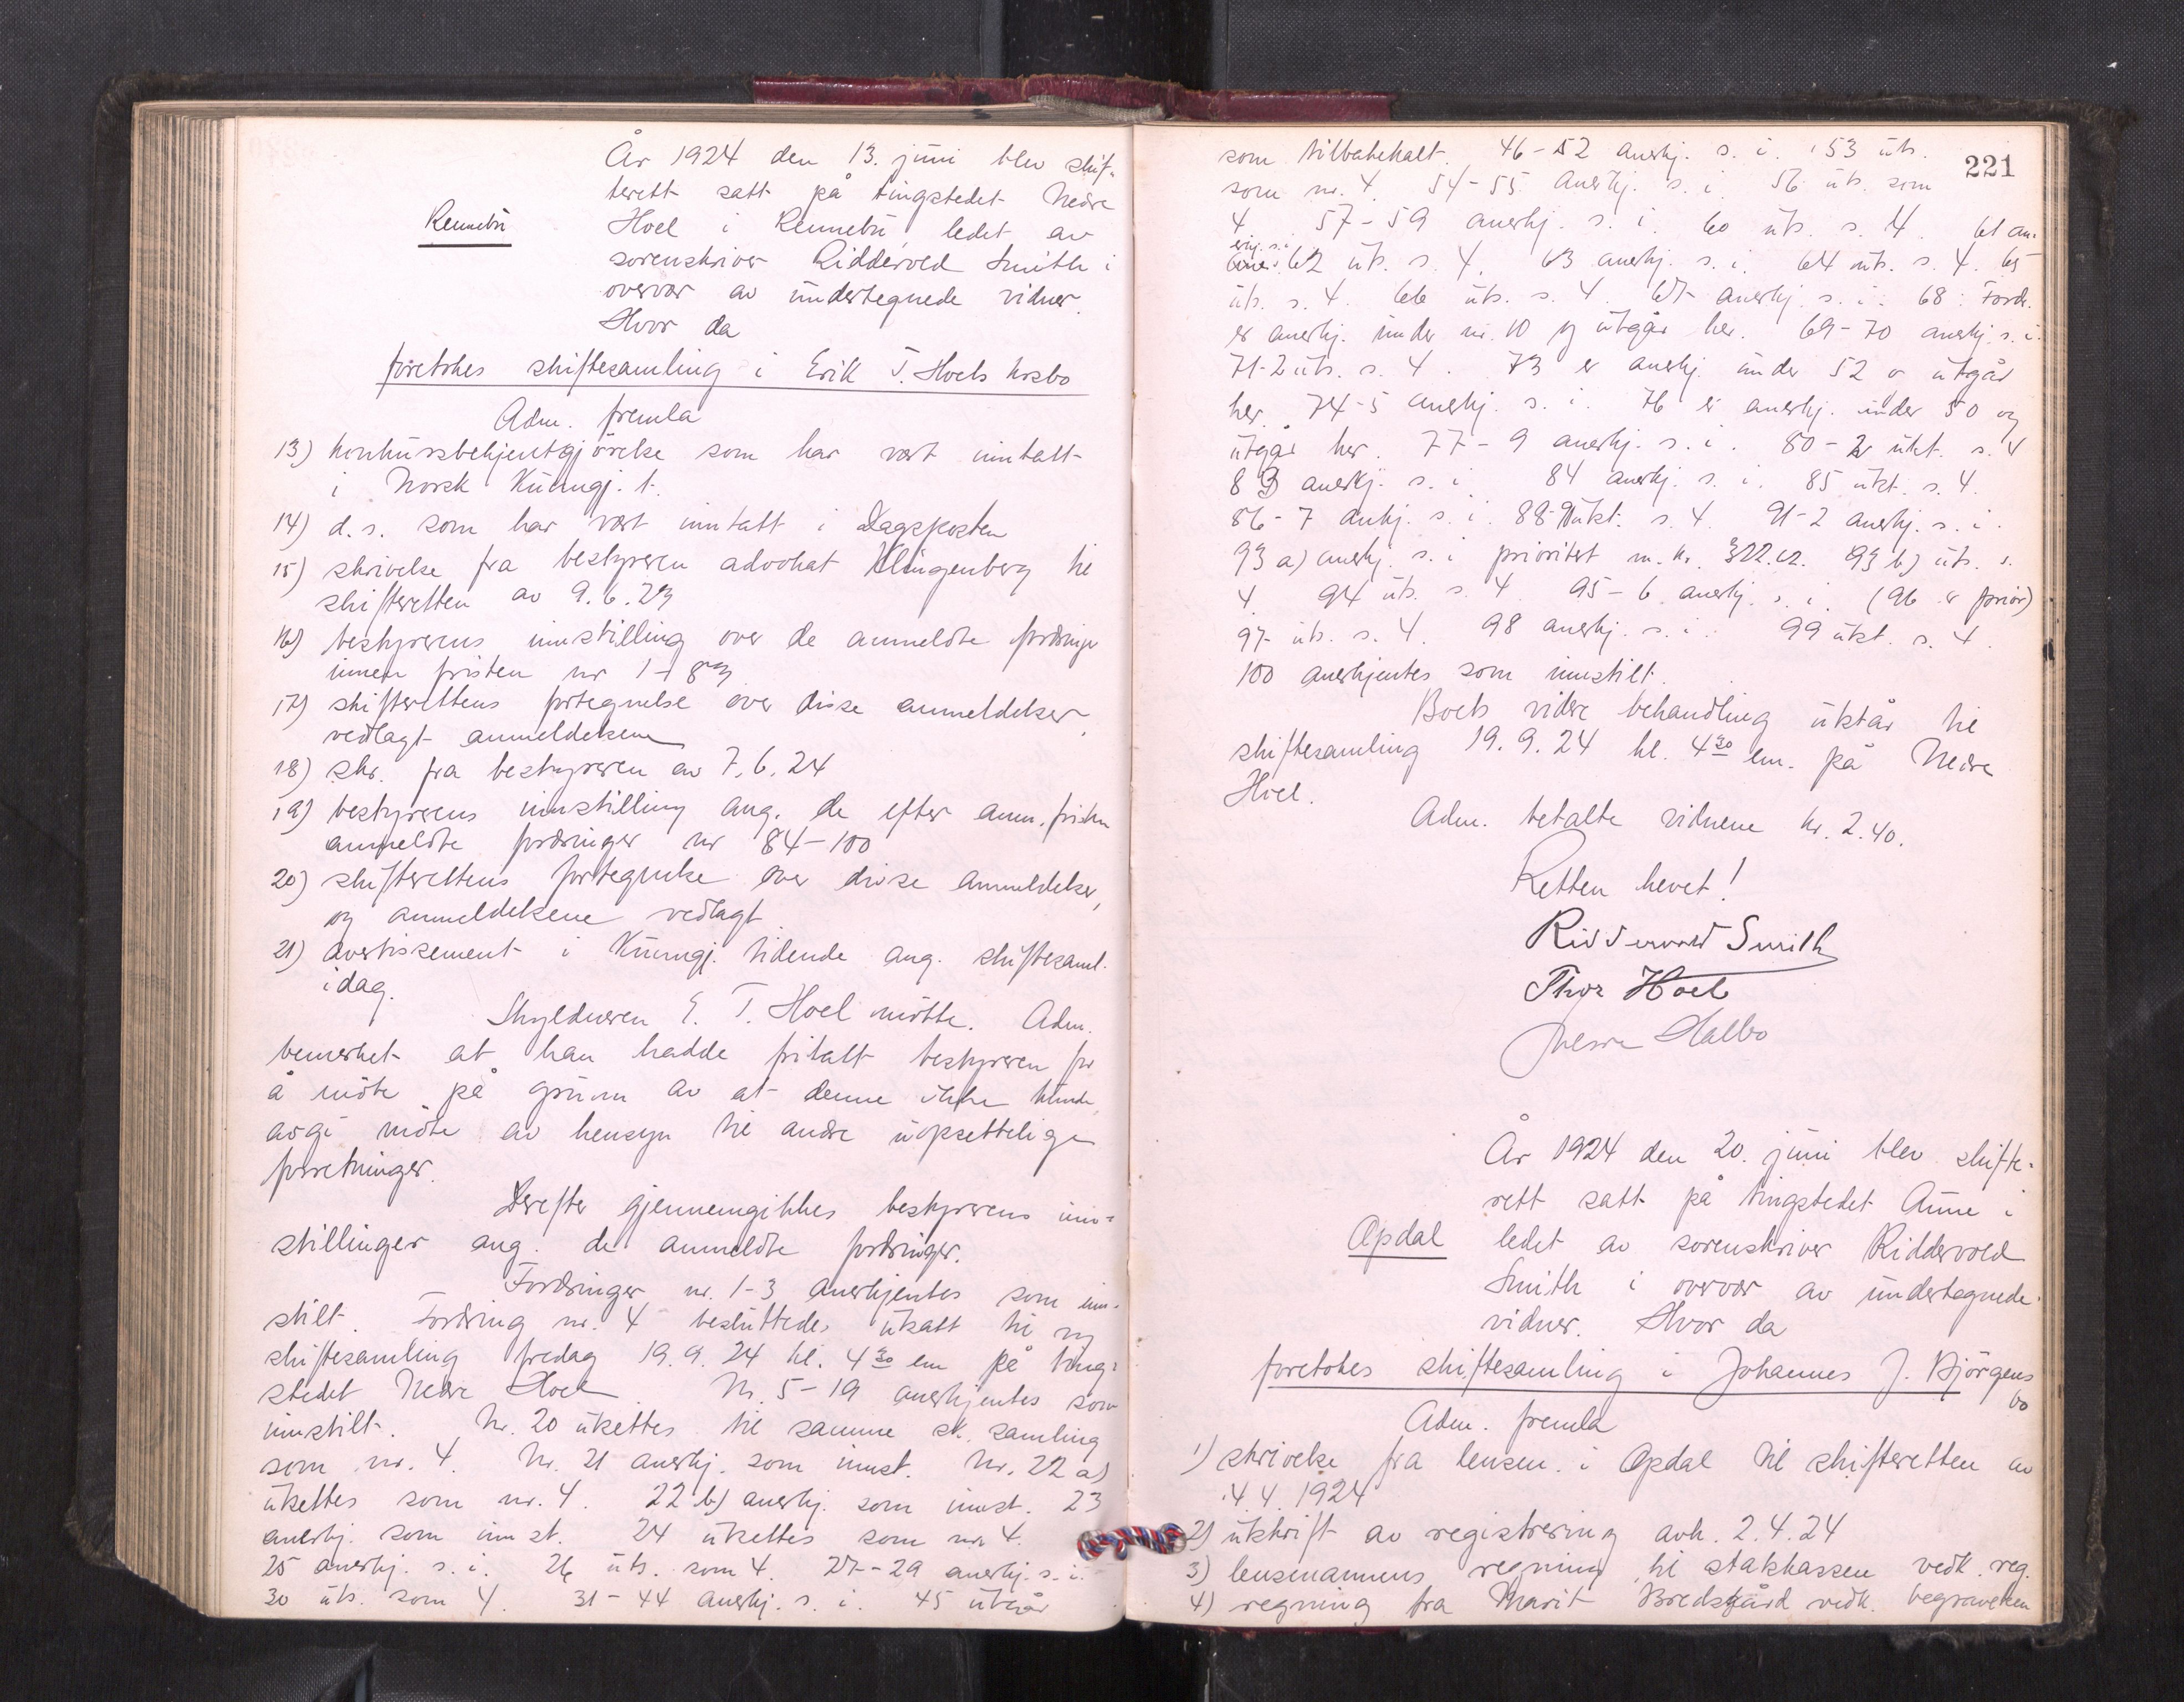 År 1924 den 13. juni blev skif-
terett satt på tingstedet Nedre
Rennebu
Hoel i Rennebu, ledet av
sorenskriver Riddervold Smith i
overvær av undertegnede vidner.
Hvor da
foretokes skiftesamling i Erik T. Hoels krsbo
Adm. fremla
13) konkursbekjentgjørelse som har vært inntatt
i Norsk Kunngj. t.
14) d. s. som har vært inntatt i Dagsposten
15) skrivelse fra bestyreren advokat Klingenberg til
skifteretten av 9.6.23
16) bestyrerens innstilling over de anmeldte fordringer
innen fristen nr 1 - 83
17) skifterettens fortegnelse over disse anmeldelser,
vedlagt anmeldelsene
18) skr. fra bestyreren av 7.6.24
19) bestyrerens innstilling ang. de efter anm.fristen
anmeldte fordringer nr 84-100
20) skifterettens fortegnelse over disse anmeldelser,
og anmeldelsene vedlagt
21) avertissement i Kunngj. tidende ang. skiftesaml.
idag.
Skyldneren E. T. Hoel møtte. Adm.
bemerket at han hadde fritatt bestyreren for
å møte på grunn av at denne ikke kunde
avgi møte av hensyn til andre uopsettelige
forretninger.
Derefter gjennemgikkes bestyrerens inn-
stillinger ang. de anmeldte fordringer.
Fordringer nr. 1-3 anerkjentes som inn-
stilt. Fordring nr. 4 besluttedes utsatt til ny
skiftesamling fredag 19.9.24 kl. 4 30 em på ting-
stedet Nedre Hoel. Nr. 5-19 anerkjentes som
innstilt. Nr. 20 utsettes til samme sk. samling
som nr. 4. Nr. 21 anerkj. som innst. Nr. 22 a)
utsettes som nr. 4. 22 b) anerkj. som innst. 23
anerkj. som innst. 24 utsettes som nr 4.
25 anerkj. s. i. 26 uts. som 4. 27-29 anerkj. s. i.
30 uts. som 4. 31-44 anerkj. s. i. 45 utgår
221
som tilbakekalt. 46-52 anerkj. s. i. 53 uts.
som nr. 4. 54-55 anerkj. s. i. 56 uts. som
4. 57-59 anerkj. s. i. 60 uts. s. 4. 61 an-
erkj. s. i.
62 uts. s. 4. 63 anerkj. s. i. 64 uts. s. 4. 65
uts. s. 4. 66 uts. s. 4. 67 anerkj. s. i. 68: Fordr.
er anerkj. under nr. 10 og utgår her. 69-70 anerkj. s. i.
71-2 uts. s. 4. 73 er anerkj. under 52 o utgår
her. 74-5 anerkj. s. i. 76 er anerkj. under 50 og
utgår her. 77-9 anerkj. s. i. 80-2 utst. s. 4
83 anerkj. s. i. 84 anerkj. s. i. 85 utst. s. 4.
86-7 ankj. s. i. 88-90 utst. s. 4. 91-2 anerkj. s. i.
93 a) anerkj. s. i prioritet m. kr. 322.12. 93 b) uts. s.
4. 94 uts. s. 4. 95-6 anerkj. s. i. (96 er prior)
97 uts. s. 4. 98 anerkj. s. i. 99 utst. s. 4.
100 anerkjentes som innstilt.
Boets videre behandling utstår til
skiftesamling 19.9.24 kl. 4 30 em. på Nedre
Hoel.
Adm. betalte vidnene kr. 2.40.
Retten hevet!
Riddervold Smith
Thor Hoel
Halbo
År 1924 den 20. juni blev skifte-
rett satt på tingstedet Aune i
Opdal
ledet av sorenskriver Riddervold
Smith i overvær av undertegnede
vidner. Hvor da
foretokes skiftesamling i Johannes J. Bjørgens
bo
Adm. fremla
1) skrivelse fra lensm. i Opdal til skifteretten av
4.4.1924
2) utskrift av registrering avh. 2.4.24
3) lensmannens regning til statskassen vedk. reg.
4) regning fra Marit Bredsgård vedk. begravelsen